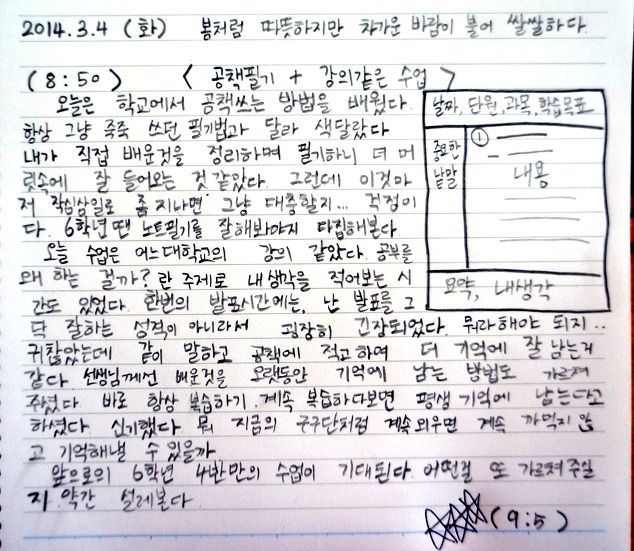 2014.3.4 (화) 봄처럼 따뜻하지만 차가운 바람이 불어 쌀쌀하다.
(8:50) < 공책필기 + 강의같은 수업 >
오늘은 학교에서 공책쓰는 방법을 배웠다.
항상 그냥 죽죽 쓰던 필기법과 달라 색달랐다
내가 직접 배운것을 정리하며 필기하니 더 머
릿속에 잘 들어오는 것 같았다. 그런데 이것마
저 작심삼일로 좀 지나면 그냥 대충할지... 걱정이
다. 6학년 땐 노트필기를 잘해봐야지 다짐해본다
오늘 수업은 어느대학교의 강의 같았다. 공부를
왜 하는 걸까? 란 주제로 내 생각을 적어보는 시
간도 있었다. 한번의 발표시간에는, 난 발표를 그
닥 잘하는 성격이 아니라서 굉장히 긴장되었다. 뭐라해야 되지..
귀찮았는데 같이 말하고 공책에 적고 하여 더 기억에 잘 남는거
같다 선생님께선 배운것을 오랫동안 기억에 남는 방법도 가르쳐
주셨다 바로 항상 복습하기. 계속 복습하다보면 평생 기억에 남는다고
하셨다. 신기했다. 뭐 지금의 구구단처럼 계속 외우면 계속 까먹지 않
고 기억해낼 수 있을까
앞으로의 6학년 4반만의 수업이 기대된다. 어떤걸 또 가르쳐 주실
지 약간 설레본다.
(9:5)
날짜, 단원, 과목, 학습목표
중요한
낱말
①
내용
요약, 내생각